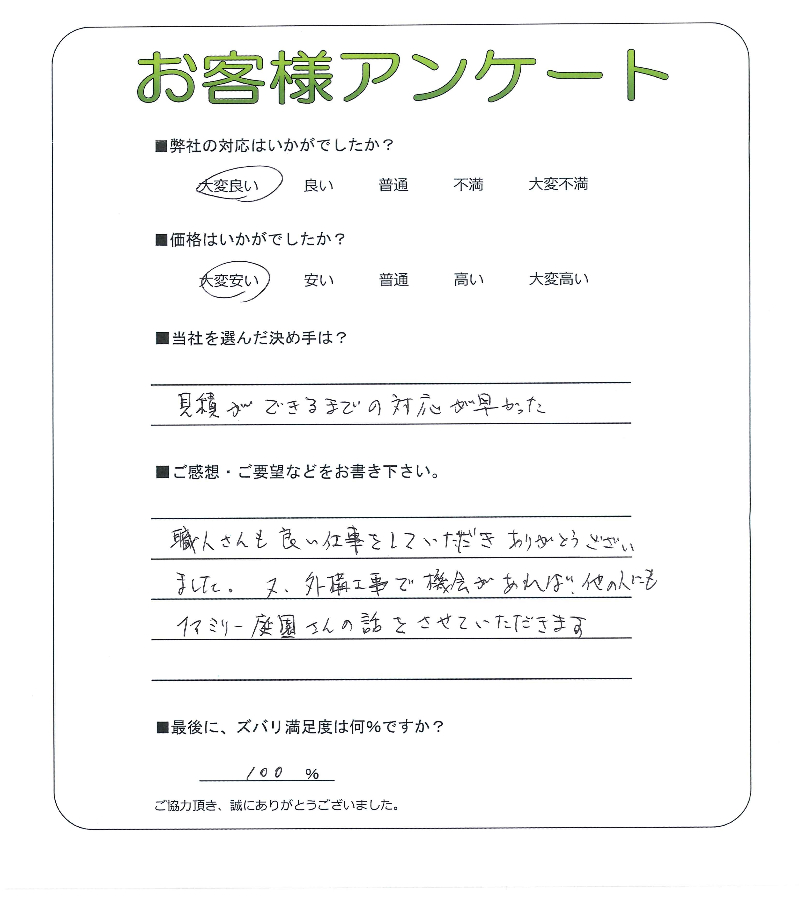 お客様アンケート
■弊社の対応はいかがでしたか？
大変良い 良い 普通 不満 大変不満
■価格はいかがでしたか？
大変安い 安い 普通 高い 大変高い
■当社を選んだ決め手は？
見積ができるまでの対応が早かった
■ご感想・ご要望などをお書き下さい。
職人さんも良い仕事をしていただきありがとうござい
ました。又、外構工事で機会があれば、他の人にも
庭園さんの話をさせていただきます
■最後に、ズバリ満足度は何%ですか？
100 %
ご協力頂き、誠にありがとうございました。